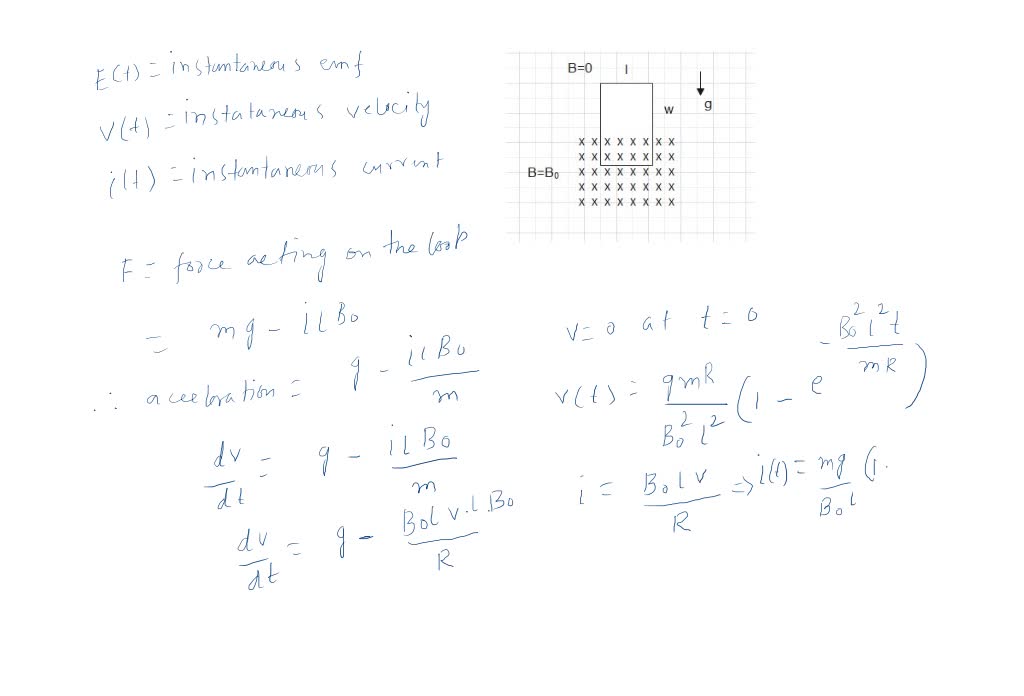 E(t) = instantaneous emf
V(t) = instataneous velocity
i(t) = instantaneous current
B=0 l
w g
x x x x x x x x
x x x x x x x x
B=B₀ x x x x x x x x
x x x x x x x x
x x x x x x x x
F = force acting on the loop
= mg - ilB₀
∴ acceleration = g - ilB₀/m
dv/dt = g - ilB₀/m
dv/dt = g - B₀lv.l.B₀/R
v=0 at t=0
v(t) = gmR/B₀²l² (1 - e^(-B₀²l²t/mR))
i = B₀lv/R ⇒ i(t) = mg/B₀l (1.